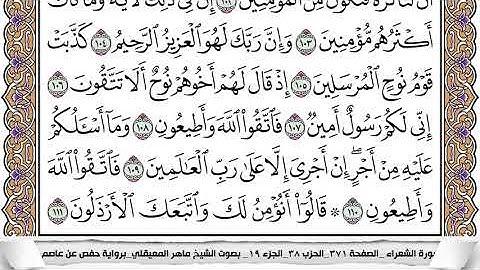 أَن لَنَا كَرَّةً فَنَكُونَ مِنَ ٱلْمُؤْمِنِينَ ١٠٢ إِنَّ فِي ذَٰلِكَ لَآيَةً وَمَا كَانَ
أَكْثَرُهُم مُّؤْمِنِينَ ١٠٣ وَإِنَّ رَبَّكَ لَهُوَ ٱلْعَزِيزُ ٱلرَّحِيمُ ١٠٤ كَذَّبَتْ
قَوْمُ نُوحٍ ٱلْمُرْسَلِينَ ١٠٥ إِذْ قَالَ لَهُمْ أَخُوهُمْ نُوحٌ أَلَا تَتَّقُونَ ١٠٦
إِنِّي لَكُمْ رَسُولٌ أَمِينٌ ١٠٧ فَٱتَّقُوا۟ ٱللَّهَ وَأَطِيعُونِ ١٠٨ وَمَآ أَسْـَٔلُكُمْ
عَلَيْهِ مِنْ أَجْرٍ ۖ إِنْ أَجْرِىَ إِلَّا عَلَىٰ رَبِّ ٱلْعَـٰلَمِينَ ١٠٩ فَٱتَّقُوا۟ ٱللَّهَ
وَأَطِيعُونِ ١١٠ ۞ قَالُوٓا۟ أَنُؤْمِنُ لَكَ وَٱتَّبَعَكَ ٱلْأَرْذَلُونَ ١١١
سورة الشعراء_ الصفحة ٣٧١_ الحزب ٣٨_ الجزء ١٩_ بصوت الشيخ ماهر المعيقلي_ برواية حفص عن عاصم